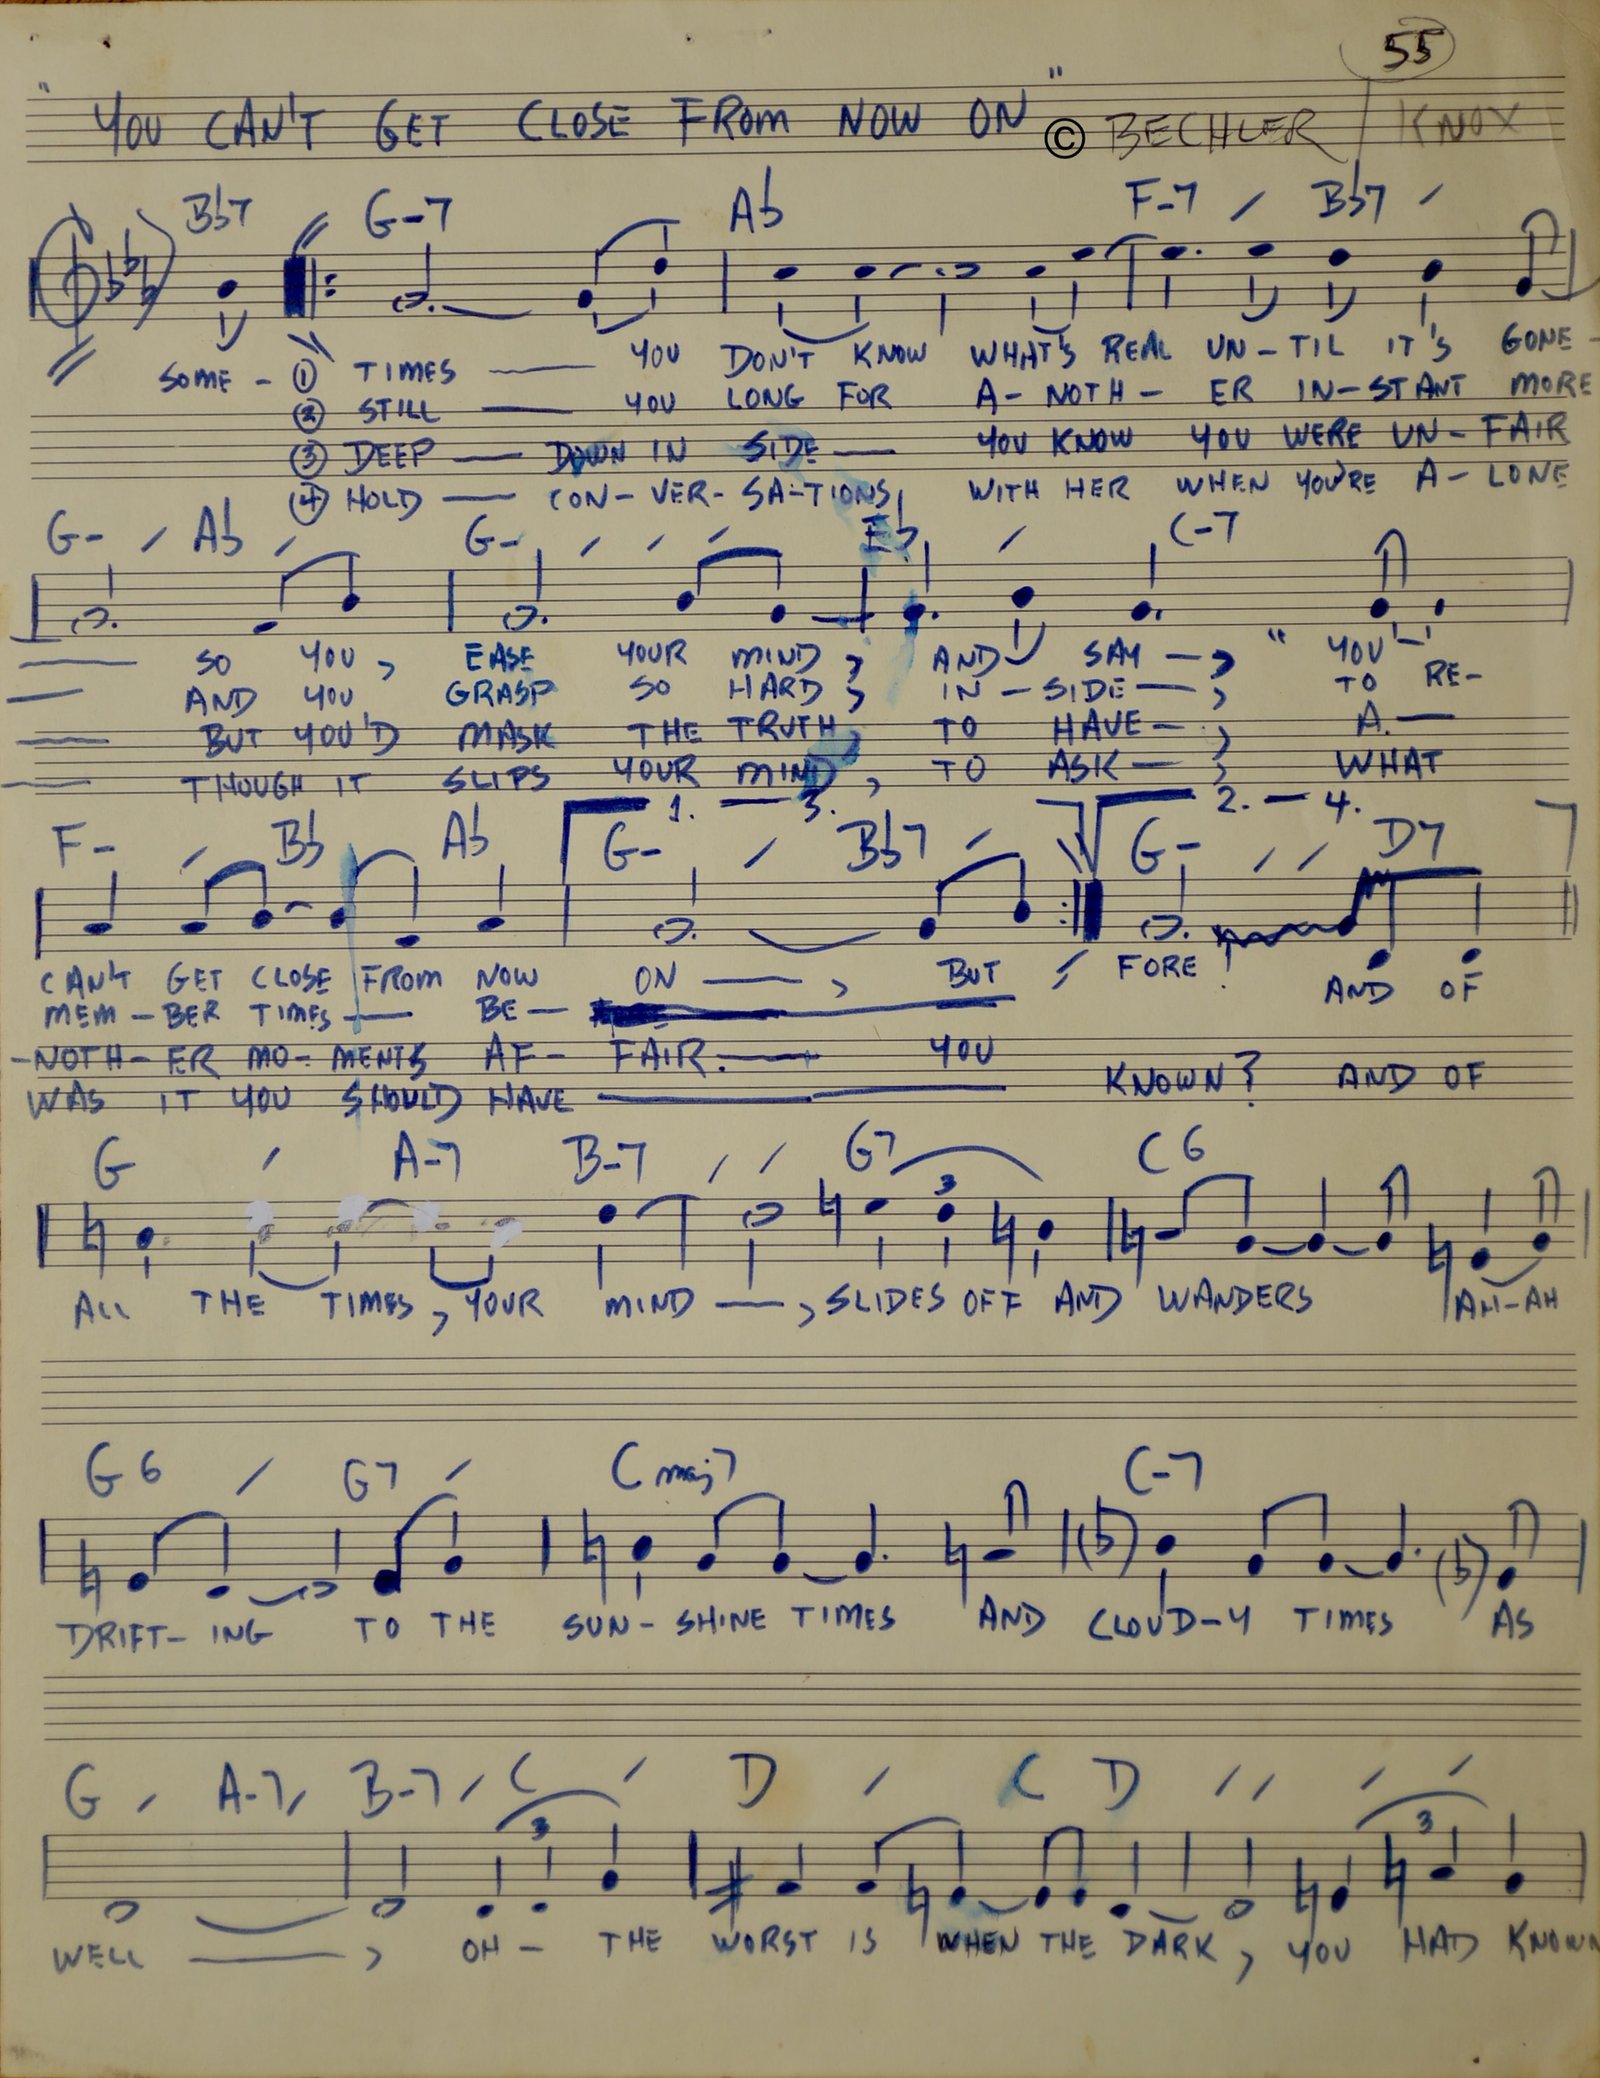 55
"YOU CAN'T GET CLOSE FROM NOW ON" © BECHLER / KNOX
B♭7 G-7 A♭ F-7 / B♭7 /
SOME - ① TIMES — YOU DON'T KNOW WHAT'S REAL UN-TIL IT'S GONE -
② STILL — YOU LONG FOR A-NOTH-ER IN-STANT MORE
③ DEEP — DOWN IN SIDE — YOU KNOW YOU WERE UN-FAIR
④ HOLD — CON-VER-SA-TIONS, WITH HER WHEN YOU'RE A-LONE
G- / A♭ / G- / / / E♭ / C-7
— SO YOU, EASE YOUR MIND, AND SAY —, " YOU
— AND YOU GRASP SO HARD, IN-SIDE —, TO RE-
— BUT YOU'D MASK THE TRUTH, TO HAVE —, A. —
— THOUGH IT SLIPS YOUR MIND, TO ASK —, WHAT
1. — 3. 2. — 4.
F- / B♭ A♭ G- / B♭7 / G- / / D7
CAN'T GET CLOSE FROM NOW ON —, BUT FORE! AND OF
MEM-BER TIMES — BE —
-NOTH-ER MO-MENTS AF- FAIR. — YOU
WAS IT YOU SHOULD HAVE — KNOWN? AND OF
G / A-7 B-7 / / G7 C6
3
ALL THE TIMES, YOUR MIND —, SLIDES OFF AND WANDERS AH-AH
G6 / G7 / Cmaj7 C-7
(♭) (♭)
DRIFT-ING TO THE SUN-SHINE TIMES AND CLOUD-Y TIMES AS
G / A-7/ B-7 / C / D / C D / / / /
3 3
WELL —, OH - THE WORST IS WHEN THE DARK, YOU HAD KNOWN